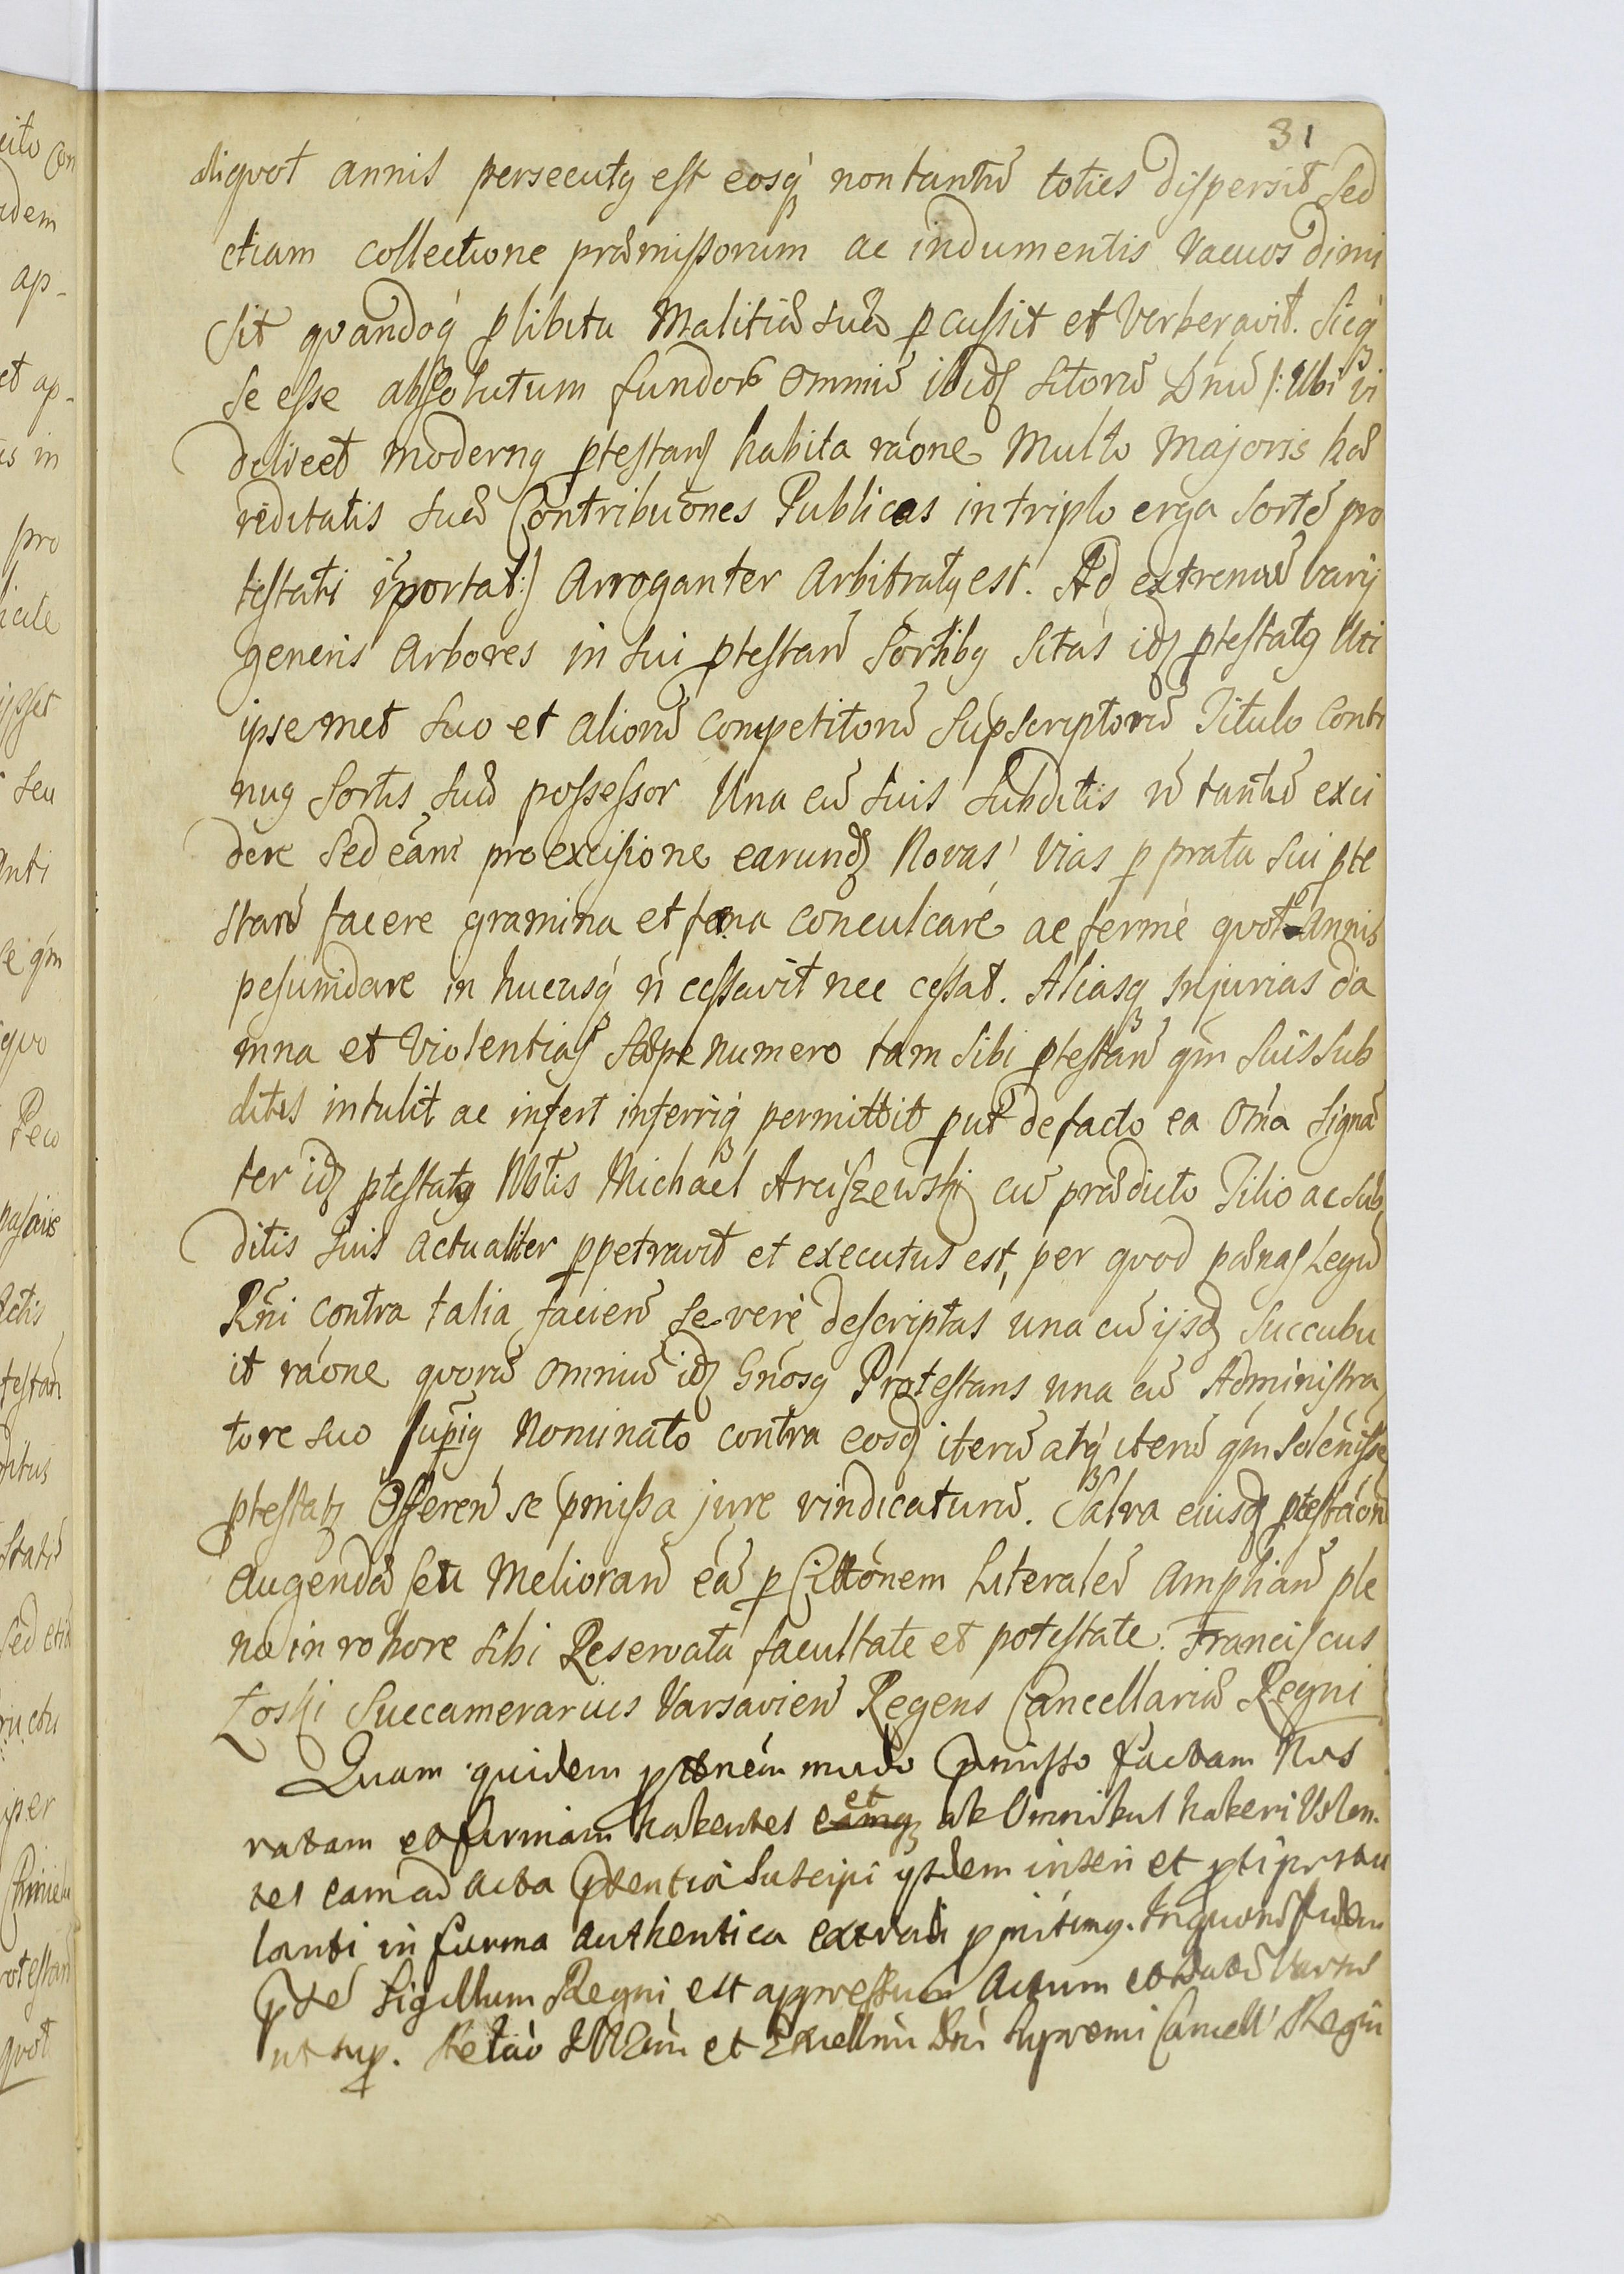 31
aliqvot annis persecutg est eosq́ non tantū toties dispersit sed
etiam collectione præmissorum ac indumentis vacuos dimi
sit qvandoq́ p libitu malitiæ suæ p cussit et verberavit. Sicq
se esse absolutum fundor omniū ibidꝫ sitorū Dnū /: Ubi vi
delicet moderng ptestanſ habita ráone multo majoris hæ
reditatis suæ Contribuōnes Publicas in triplo erga sortē pro
testati īportat:) Arroganter Arbitratg est. Ad extremū varij
generis Arbores in sui ptestanđ sortibg sitas idꝫ ptestatg uti
ipsemet suo et aliorū competitorū supscriptorū Titulo conti
nug sortis suæ possessor una cū suis subditis ń tantū exci
dere sed eām pro excisione earundꝫ novas vias p prata sui pte
stanđ facere gramina et fæna conculcare ac fermè qvot annis
pesumdare in hucusq́ ń cessavit nec cessat. Aliasq injurias da
mna et violentias sæpenumero tam sibi ptestanđ qm̄ suis sub
ditis intulit ac infert inferriq́ permittit put de facto ea om̄a signā
ter idꝫ ptestatg Mtis Michael Arciszewski cū prædicto Filio ac sub
ditis suis actualiter ppetravit et executus est, per qvod pænas Legū
Rn̄i contra talia facienđ severè descriptas una cū ijsdꝫ succubu
it ráone qvorū omniū idꝫ Gnōsg Protestans una cū Administra
tore suo supig nominato contra eosdꝫ iterū atq́ iterū qm̄ solēnisse
ptestatꝫ Offerenđ se pmissa jure vindicaturū. Salva eiusdꝫ ptestáōn
augendæ seu melioranđ eā p Cittōnem Literalē amplianđ ple
no in robore sibi reservata facultate et potestate. Franciscus
Łoski Succamerarius Varsavienđ Regens Cancellariæ Regni
Quam quidem ptōnem modo pmisso factam Nos
ratam et firmam habentes et ab omnibus haberi volen.
tes eam ad acta pſentia suscipi ijsdem inseri et pti postu
lanti in forma authentica extradi pmitimg. In quorū fidem
pntē Sigillum Regni est appressum Actum et datū Varsā
ut sup. Relāo et Excellmi Dni Supremi Cancell Regni